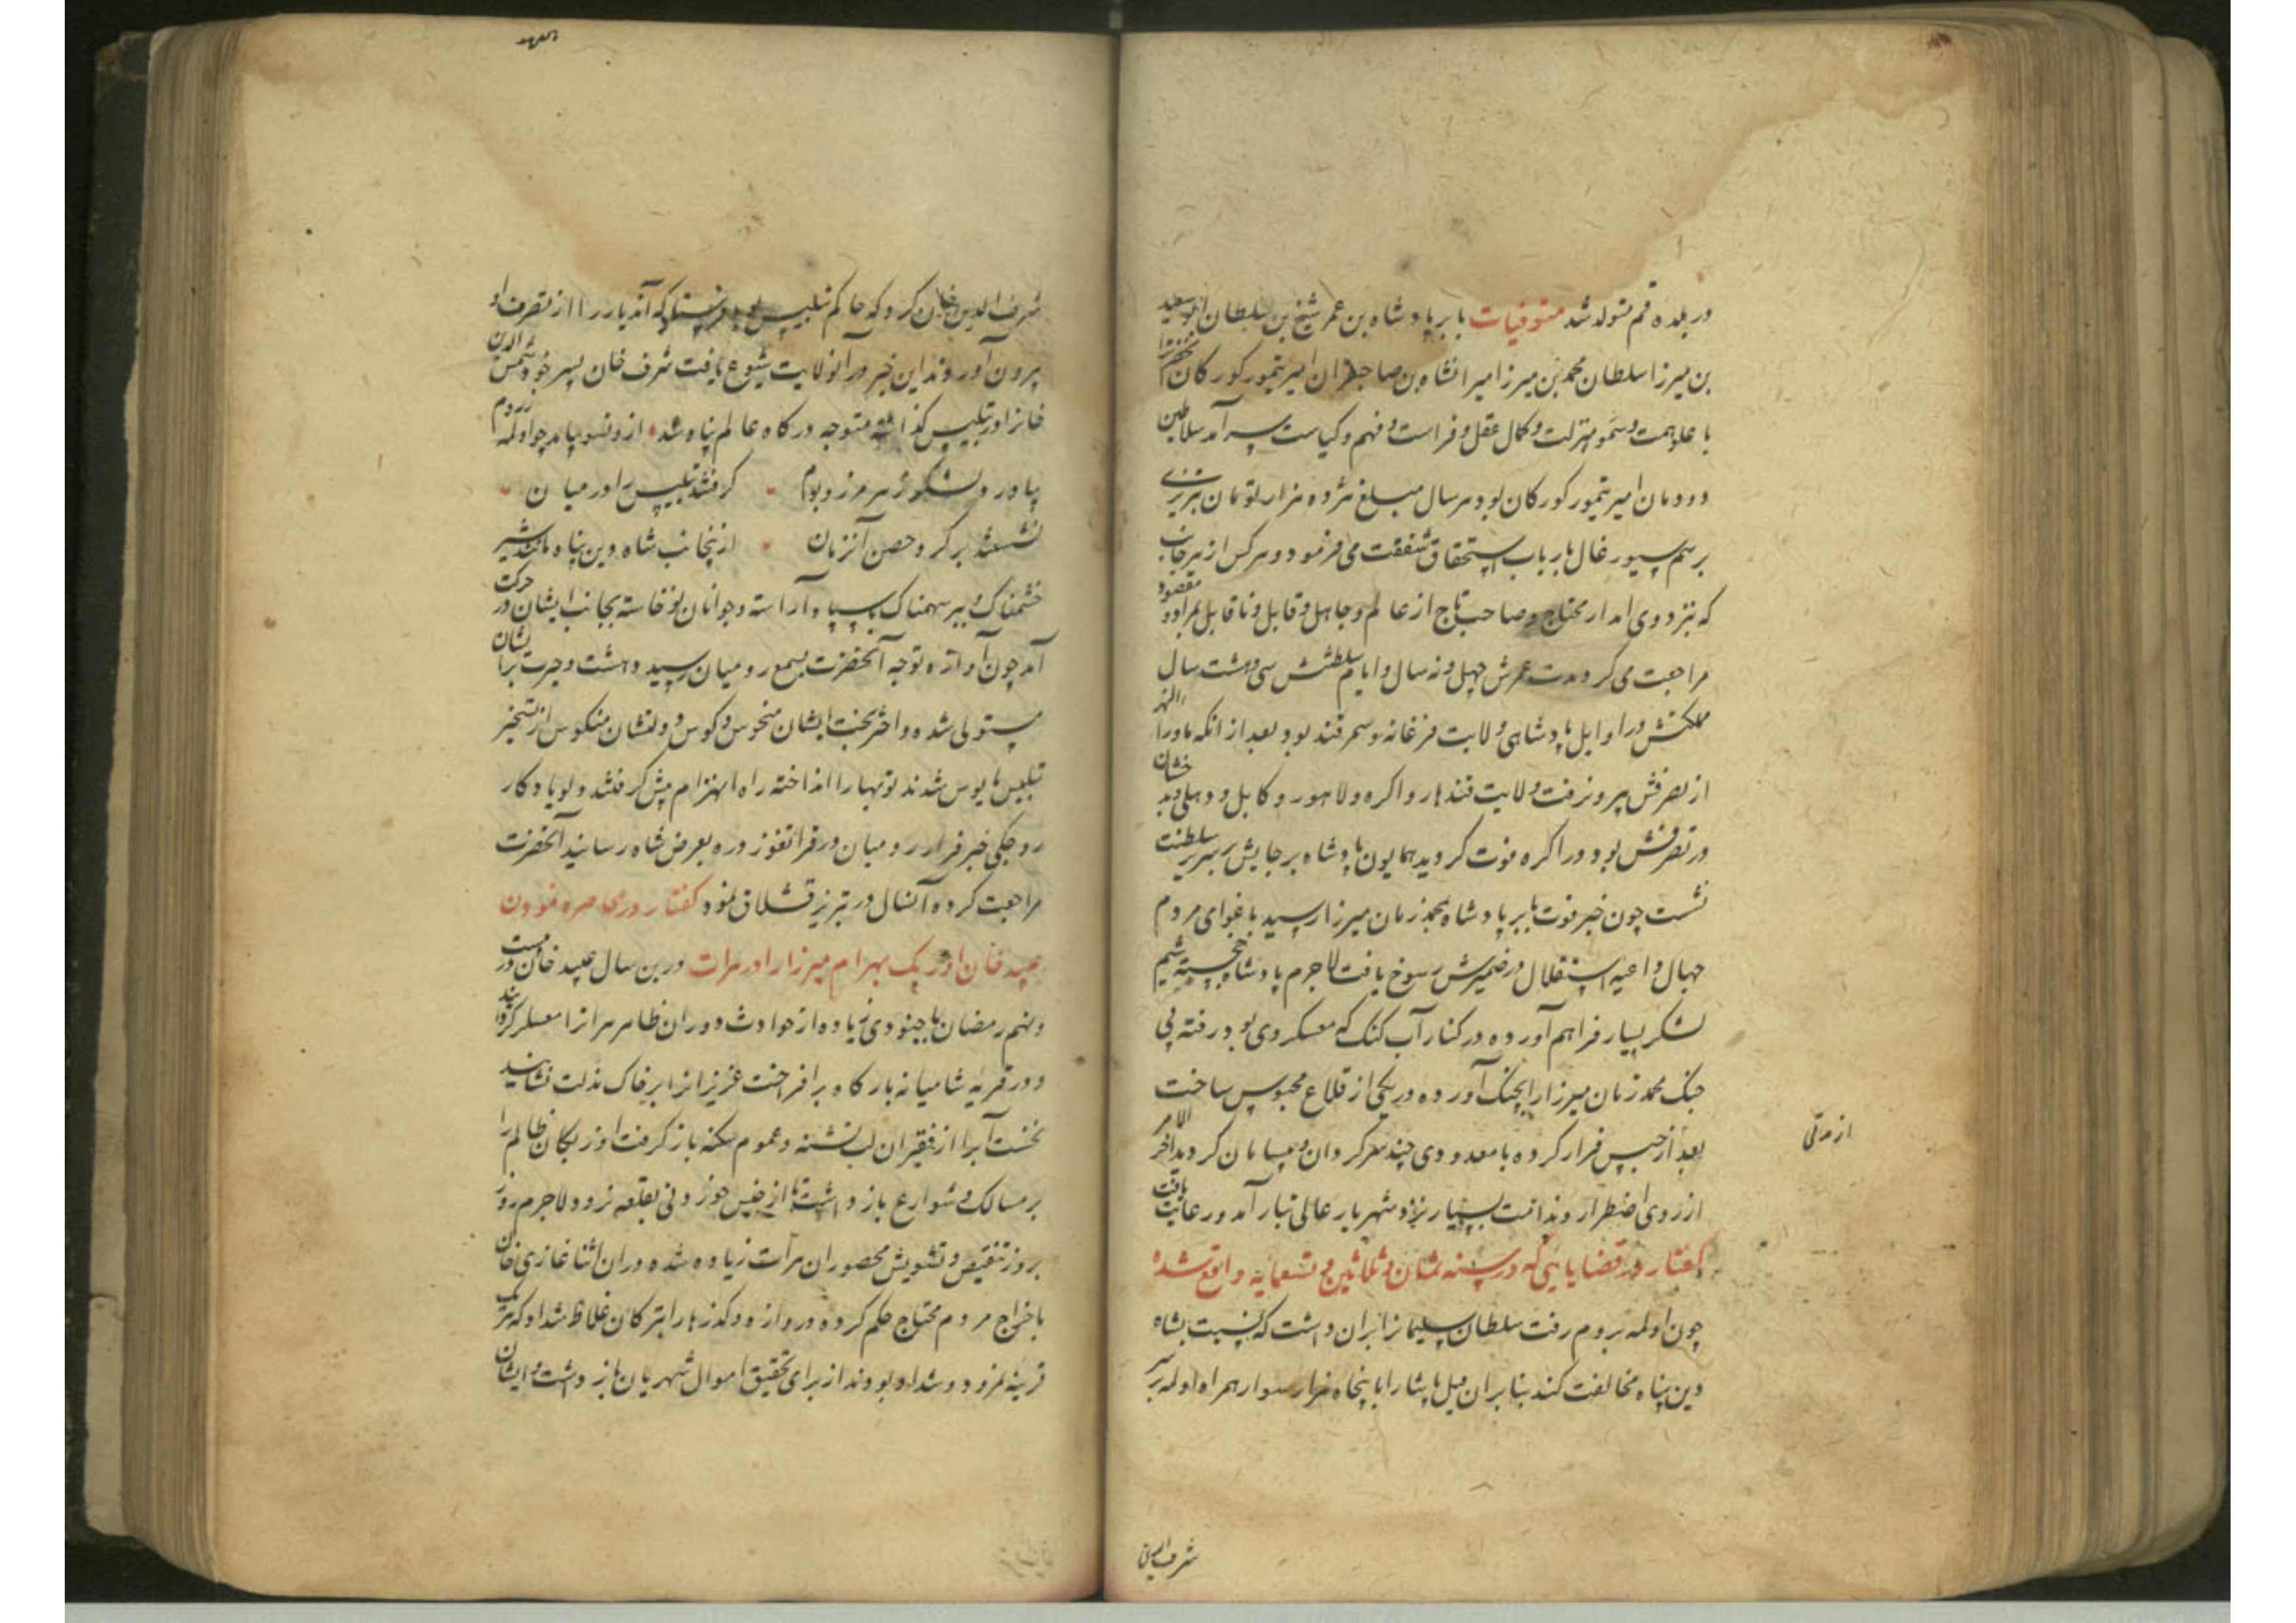 در بلده قم متولد شد متوفیات بابر پادشاه بن عمر شیخ بن سلطان ابوسعید
بن میرزا سلطان محمد بن میرزا میرانشاه بن صاحبقران امیر تیمور کورکان
با علو همت و سمو منزلت و کمال عقل و فراست و فهم و کیاست سرآمد سلاطین
دودمان امیر تیمور کورکان بود هر سال مبلغ هژده هزار تومان تبریزی
برسم سیورغال بارباب استحقاق شفقت می فرمود و هر کس از هر جانب
که نزد وی امدار محتاج و صاحب تاج از عالم و جاهل و قابل و ناقابل بمراد و مقصود
مراجعت می کرد مدت عمرش چهل و نه سال و ایام سلطنتش سی و هشت سال
مملکتش در اوایل پادشاهی ولایت فرغانه و سمرقند بود بعد از انکه ماوراء النهر
از تصرفش بیرون رفت ولایت قندهار و اکره و لاهور و کابل و دهلی و بدخشان
در تصرفش بود در اکره فوت کردید همایون پادشاه بر جایش بر سریر سلطنت
نشست چون خبر فوت بابر پادشاه بمحمد زمان میرزا رسید باغوای مردم
جهال داعیه استقلال در ضمیرش رسوخ یافت لاجرم پادشاه خجسته شیم
لشکر بسیار فراهم آورده در کنار آب کنک که معسکر وی بود رفته بی
جنک محمد زمان میرزا را بچنک آورده در یکی از قلاع محبوس ساخت
بعد از حبس فرار کرده با معدودی چند سرکردان و بیسامان کردید اخر الامر
از روی اضطرار و ندامت بسیار نزد شهریار عالی تبار آمد و رعایت یافت
از مدتی
کفتار در قضایایی که در سنه ثمان و ثلاثین و تسعمایه واقع شده
چون اولمه بروم رفت سلطان سلیمانرا بران داشت که نسبت بشاه
دین پناه مخالفت کند بنابران فیل پاشا را با پنجاه هزار سوار همراه اولمه بر سر
شرف الدین
شرف الدین خان کرد که حاکم تبلیس بود فرستاد که آندیار را از تصرف او
بیرون آورند این خبر در انولایت شیوع یافت شرف خان پسر خود شمس الدین
خانرا در تبلیس کذاشته متوجه درکاه عالم پناه شد ازو نسو بیامد چو اولمه ز روم
بیاورد لشکر ز هر مرز و بوم کرفتند تبلیس را در میان
نشستند بر کرد حصن آنزمان ازینجانب شاه دین پناه مانند شیر
خشمناک و ببر سهمناک با سپاه آراسته و جوانان نوخاسته بجانب ایشان در حرکت
آمد چون آوازه توجه آنحضرت بسمع رومیان رسید دهشت و حیرت بر ایشان
مستولی شده و اختر بخت ایشان منحوس و کوس دولتشان منکوس از تسخیر
تبلیس مایوس شدند توبها را انداخته راه انهزام پیش کرفتند و لو یادکار
روجکی خبر فرار رومیان در قراتغوز دره بعرض شاه رسانید آنحضرت
مراجعت کرده آنسال در تبریز قشلاق نمود کفتار در محاصره نمودن
عبید خان اوزبک بهرام میرزا را در هرات درین سال عبید خان در بیست
و نهم رمضان با جنودی زیاده از حوادث دوران ظاهر هرات را معسکر کردانید
و در قریه شامیانه بارکاه برافراخت عزیزانرا بر خاک مذلت نشانید
نخست آبرا از فقیران لب تشنه و عموم سکنه باز کرفت اوزبکان ظالم را
بر مسالک و شوارع باز داشت تا از جنس خوردنی بقلعه نرود لاجرم روز
بروز تنقیص و تشویش محصوران هرات زیاده شده دران اثنا غازی خان
باخراج مردم محتاج حکم کرده دروازه و کذرها را بترکان غلاظ شداد که هر یک
قرینه نمرود و شداد بودند از برای تحقیق اموال شهریان باز داشت و ایشان